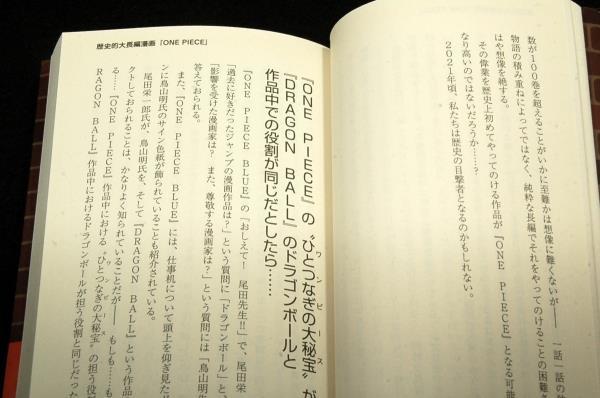 数が100巻を超えることがいかに至難かは想像に難くないが―― 一話一話の
物語の積み重ねによってではなく、純粋な長編でそれをやってのけることの困難さ
はや想像を絶する。
その偉業を歴史上初めてやってのける作品が『ONE PIECE』となる可能
なり高いのではないだろうか……?
2021年頃、私たちは歴史の目撃者となるのかもしれない。
歴史的大長編漫画『ONE PIECE』
『ONE PIECE』の〝ひとつなぎの大秘宝〟が
ワンピース
『DRAGON BALL』のドラゴンボールと
作品中での役割が同じだとしたら……
『ONE PIECE BLUE』の「おしえて! 尾田先生!!」で、尾田栄
「過去に好きだったジャンプの漫画作品は?」という質問に「ドラゴンボール」と、
「影響を受けた漫画家は? また、尊敬する漫画家は?」という質問には「鳥山明
答えておられる。
また、『ONE PIECE BLUE』には、仕事机について頭上を仰ぎ見た
ンに鳥山明氏のサイン色紙が飾られていることも紹介されている。
尾田栄一郎氏が、鳥山明氏を、そして『DRAGON BALL』という作
クトしておられることは、かなりよく知られていることだが―― もしも……
る……『ONE PIECE』作品中における〝ひとつなぎの大秘宝〟の担う役
ワンピース
RAGON BALL』作品中におけるドラゴンボールが担う役割と同じだった